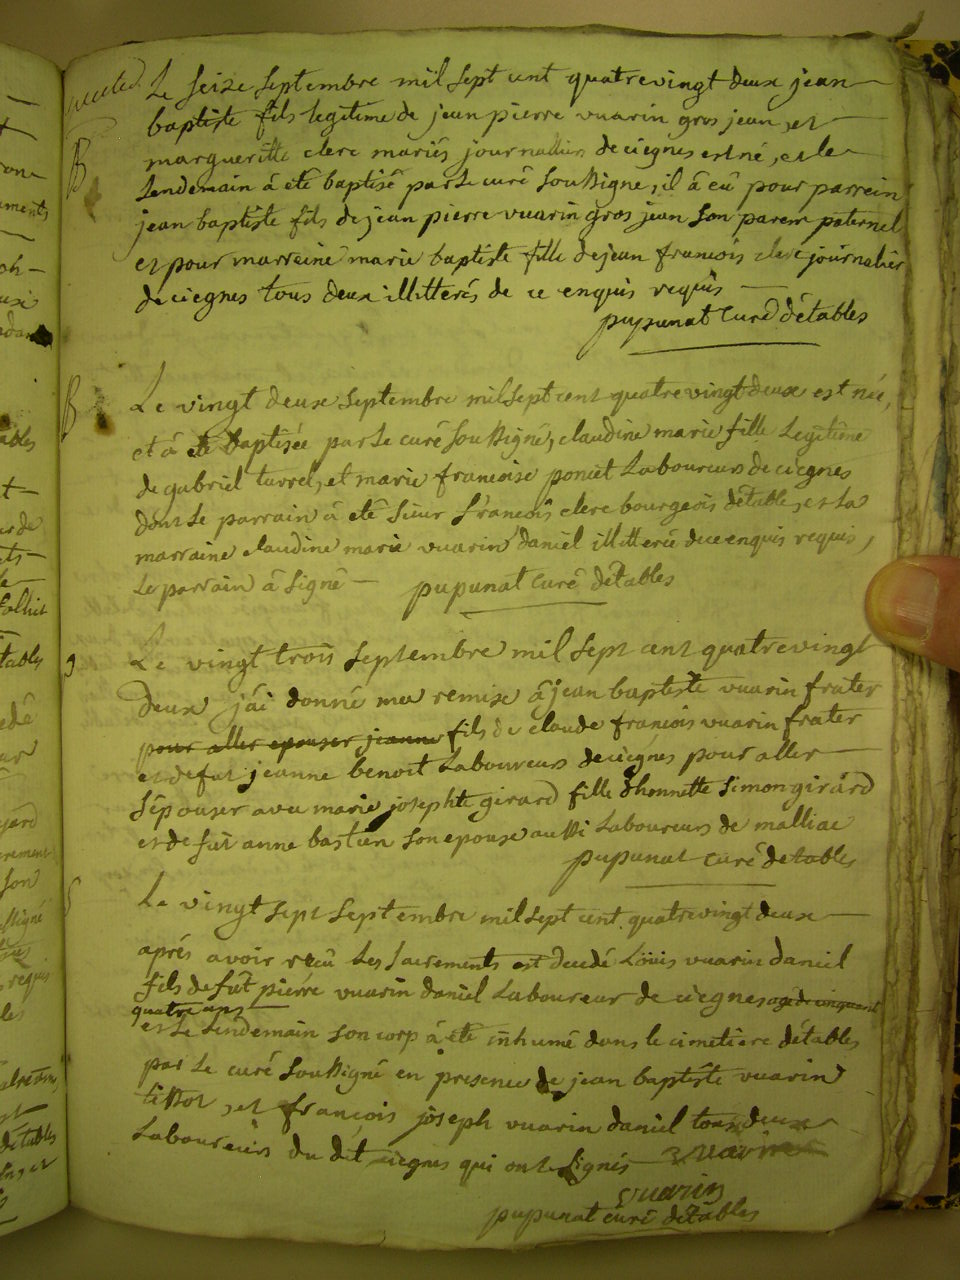 Le seize septembre mil sept cent quatrevingt deux jean
baptiste fils legitime de jean pierre vuarin gros jean, et
margueritte clerc mariés journalliers de ciegnes est né, et le
Lendemain á eté baptisé par Le curé soussigné, il á eû pour parrein
jean baptiste fils de jean pierre vuarin gros jean son parein paternel
et pour marreine marie baptiste fille de jean francois clerc journalier
de ciegnes tous deux illitterés de ce enquis requis
pupunat Curé d'étables
B
Le vingt deux septembre mil sept cent quatre vingt deux est née,
et á eté baptisée par Le curé soussigné, claudine marie fille Legitime
de gabriel turrel, et marie francoise poncet Laboureurs de ciegnes
dont Le parrain á eté sieur francois clerc bourgeois détable, et La
marraine claudine marie vuarin daniel illitteré de ce enquis requis,
Le parrain á signé pupunat Curé détables
Le vingt trois septembre mil sept cent quatrevingt
deux j'ai donné ma remise á jean baptiste vuarin frater
pour aller epouser jeanne fils de claude francois vuarin frater
et de fut jeanne benoit Laboureurs de ciegnes pour aller
s'épouser avec marie josephte girard fille d'honnette simon girard
et de fut anne bastien son epouse aussi Laboureurs de malliac
pupunat curé détables
S
Le vingt sept septembre mil sept cent quatrevingt deux
aprés avoir recû Les sacrements est decedé Loüis vuarin daniel
fils de fût pierre vuarin daniel Laboureur de ciegnes agé de cinquant
quatre ans
et Le Lendemain son corp á eté inhumé dans le cimetiere détables
par Le curé soussigné en presence de jean baptiste vuarin
tissot, et françois joseph vuarin daniel tous deux
Laboureurs du dit ciegnes qui ont signés vuarin
vuarin
pupunat curé détables